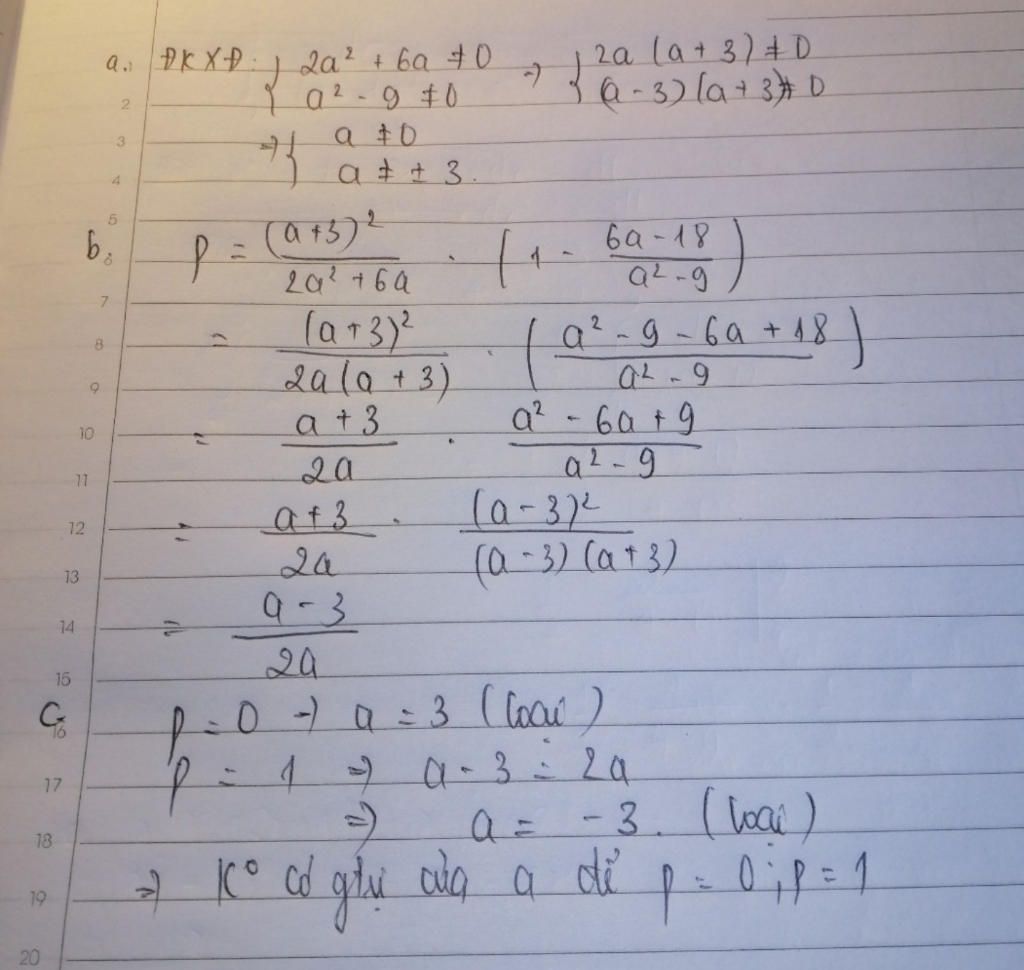 a. ĐKXĐ: { 2a² + 6a ≠ 0 ⇒ { 2a (a + 3) ≠ 0
a² - 9 ≠ 0 (a - 3) (a + 3) ≠ 0
⇒ { a ≠ 0
a ≠ ± 3.
b. P = (a+3)² / (2a² + 6a) . (1 - (6a - 18) / (a² - 9))
= (a + 3)² / (2a(a + 3)) . ((a² - 9 - 6a + 18) / (a² - 9))
= (a + 3) / (2a) . (a² - 6a + 9) / (a² - 9)
= (a+3) / (2a) . (a - 3)² / ((a - 3) (a + 3))
= (a - 3) / (2a)
c. P = 0 ⇒ a = 3 (loại)
P = 1 ⇒ a - 3 = 2a
⇒ a = - 3. (loại)
⇒ K° có gtrị của a để P = 0 ; P = 1
2
3
4
5
6
7
8
9
10
11
12
13
14
15
16
17
18
19
20